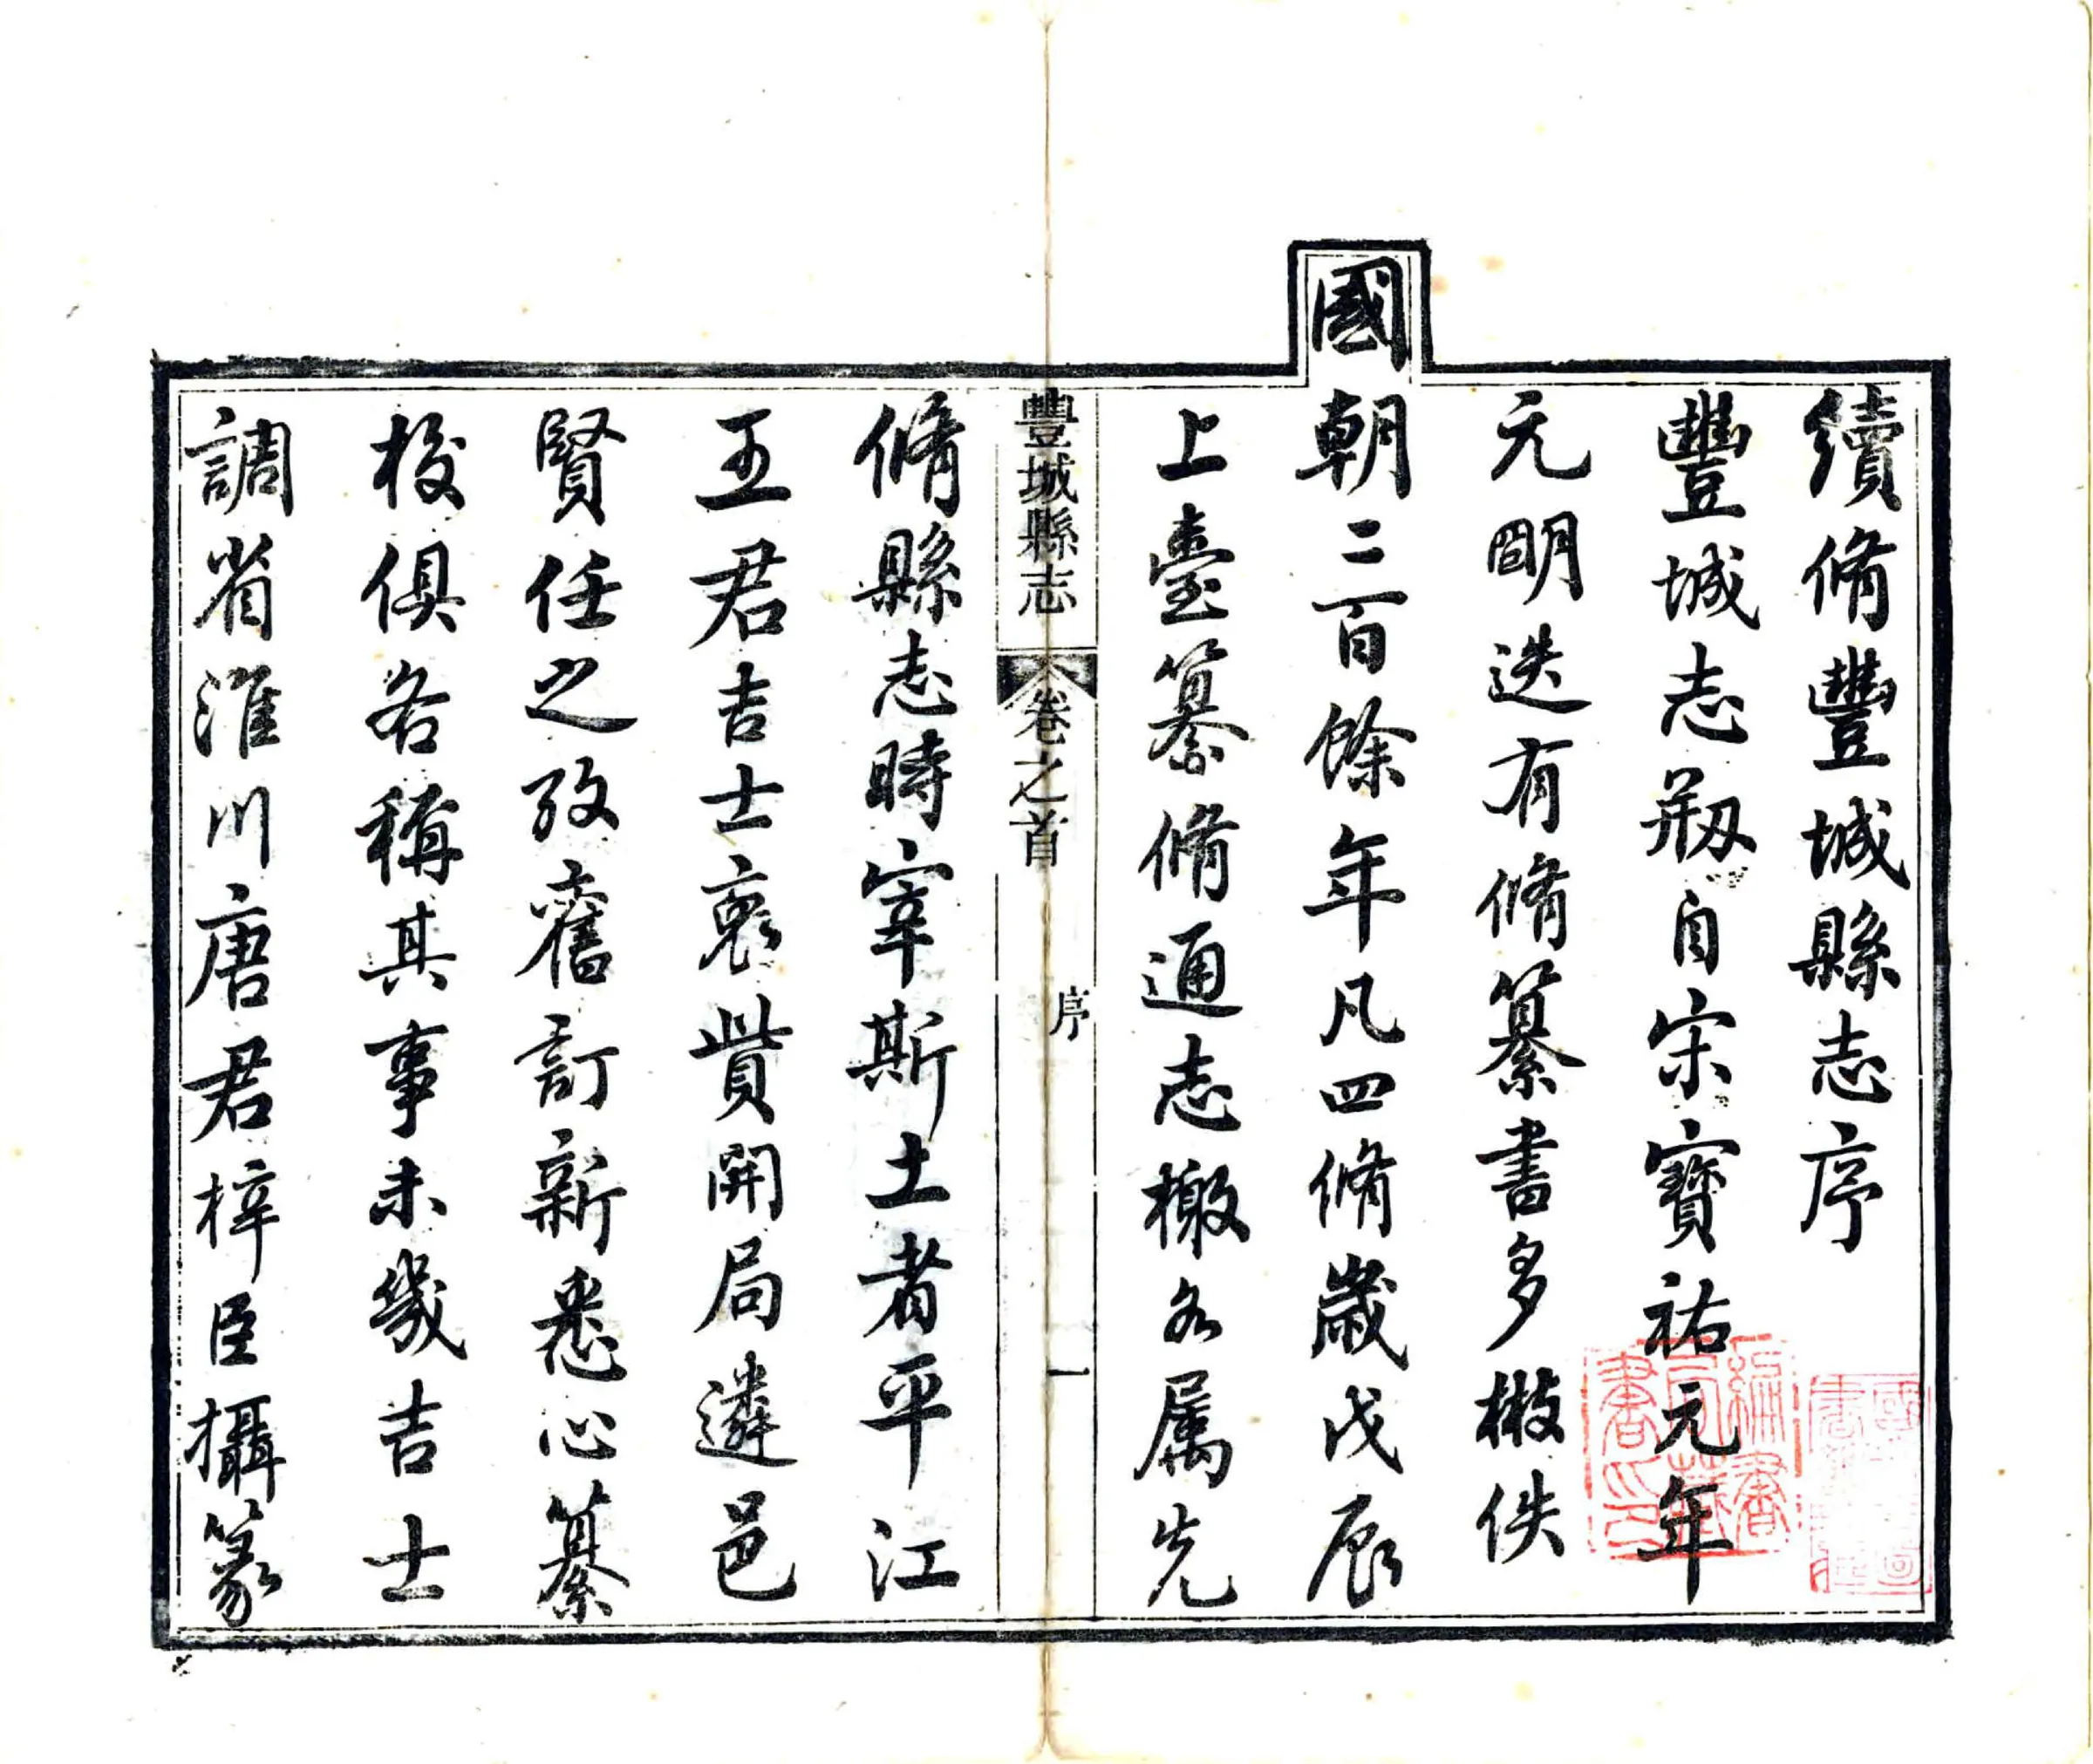 續脩豐城縣志序
豐城志剏自宋寶祐元年
元明迭有脩纂書多散佚
國朝二百餘年凡四脩歲戊辰
上臺纂脩通志檄各属先
豐城縣志
卷之首
序
一
脩縣志時宰斯土者平江
王君吉士裒貲開局遴邑
賢任之攷舊訂新悉心纂
校俱各稱其事未幾吉士
調省淮川唐君梓臣攝篆